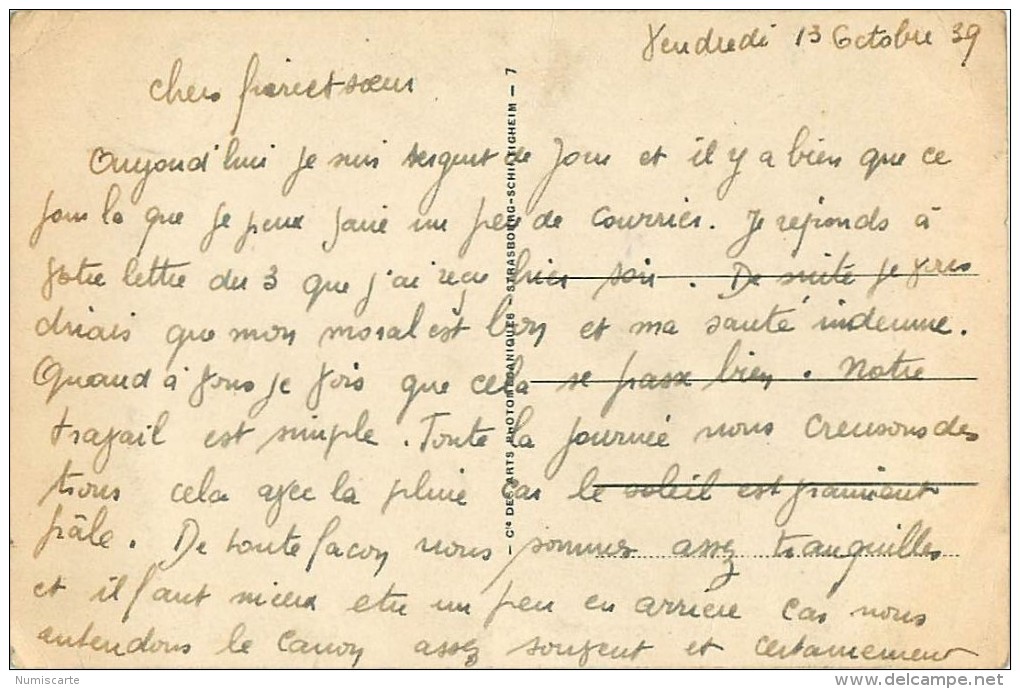 Vendredi 13 Octobre 39
Chers frère et sœur
Aujourd'hui je suis sergent de jour et il y a bien que ce
jour là que je peux faire un peu de courrier. Je réponds à
votre lettre du 3 que j'ai reçue hier soir. De suite je vous
dirais que mon moral est bon et ma santé indemne.
Quand à vous je vois que cela se passe bien. Notre
travail est simple. Toute la journée nous creusons des
trous cela avec la pluie car le soleil est vraiment
pâle. De toute façon nous sommes assez tranquilles
et il faut mieux etre un peu en arrière car nous
entendons le canon assez souvent et certainement
- Cie DES ARTS PHOTOMECANIQUES - STRASBOURG-SCHILTIGHEIM - 7
Numiscarte
www.delcampe.net